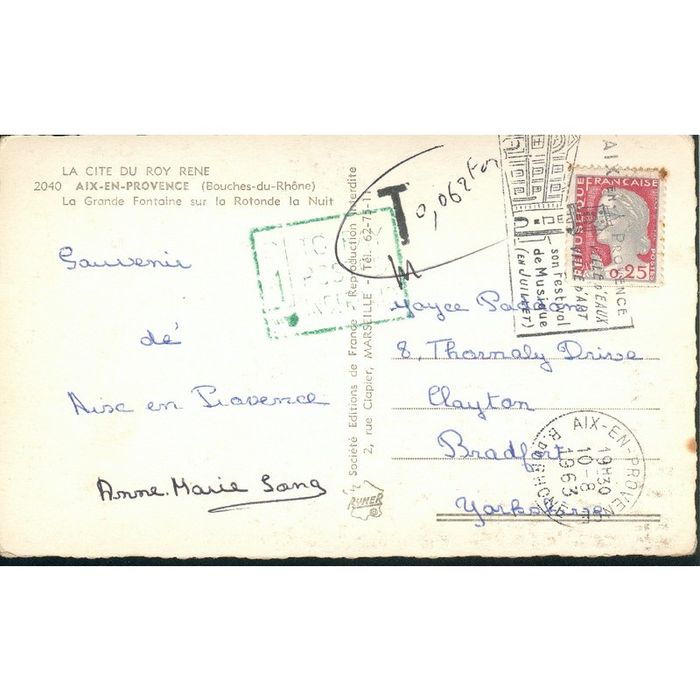 LA CITE DU ROY RENE
2040 AIX-EN-PROVENCE (Bouches-du-Rhône)
La Grande Fontaine sur la Rotonde la Nuit
Souvenir
dé
Aise en Provence
Anne-Marie Sang
Société Editions de France - Reproduction Interdite
2, rue Clapier, MARSEILLE - Tél. 62-75-11
RUMER
T 0,062 For
TO PAY
1
son Festival
de Musique
(EN JUILLET)
AIX EN PROVENCE
VILLE D'EAUX
VILLE D'ART
REPUBLIQUE FRANÇAISE
0,25
POSTES
8, Thornaly Drive
Clayton
Bradfort
Yorkshire
AIX-EN-PROVENCE
19H30
10-8
1963
B. DU RHONE